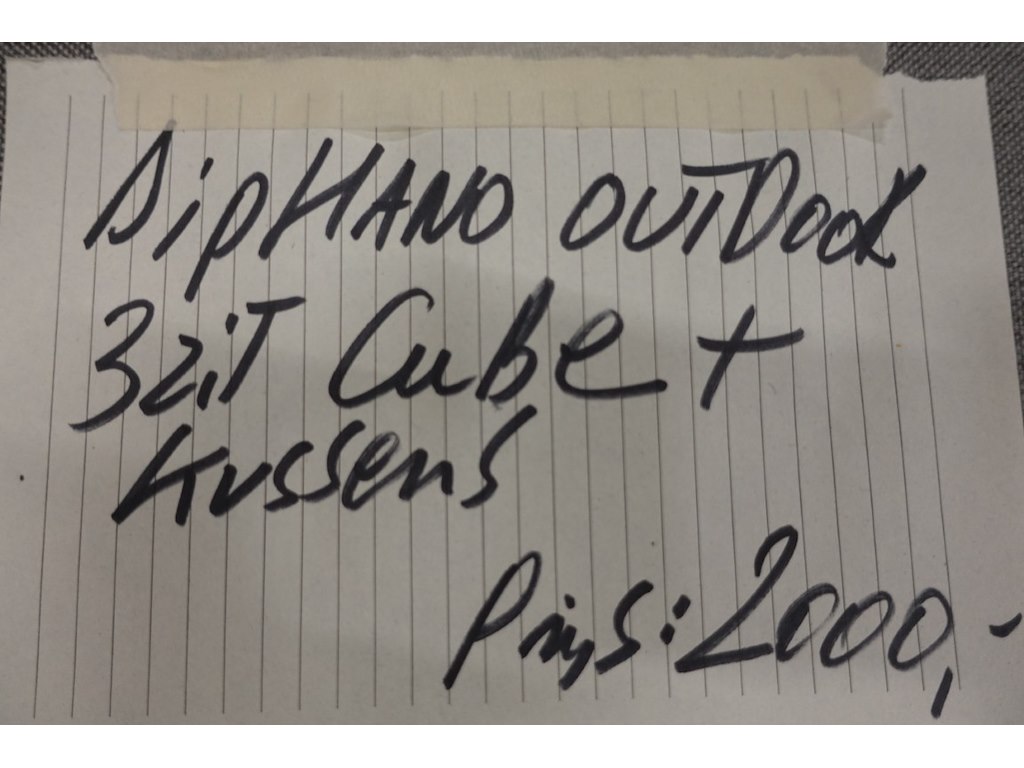 DipHANO OUTDOOR
3ziT CuBe +
Kussens
Prijs: 2000,-